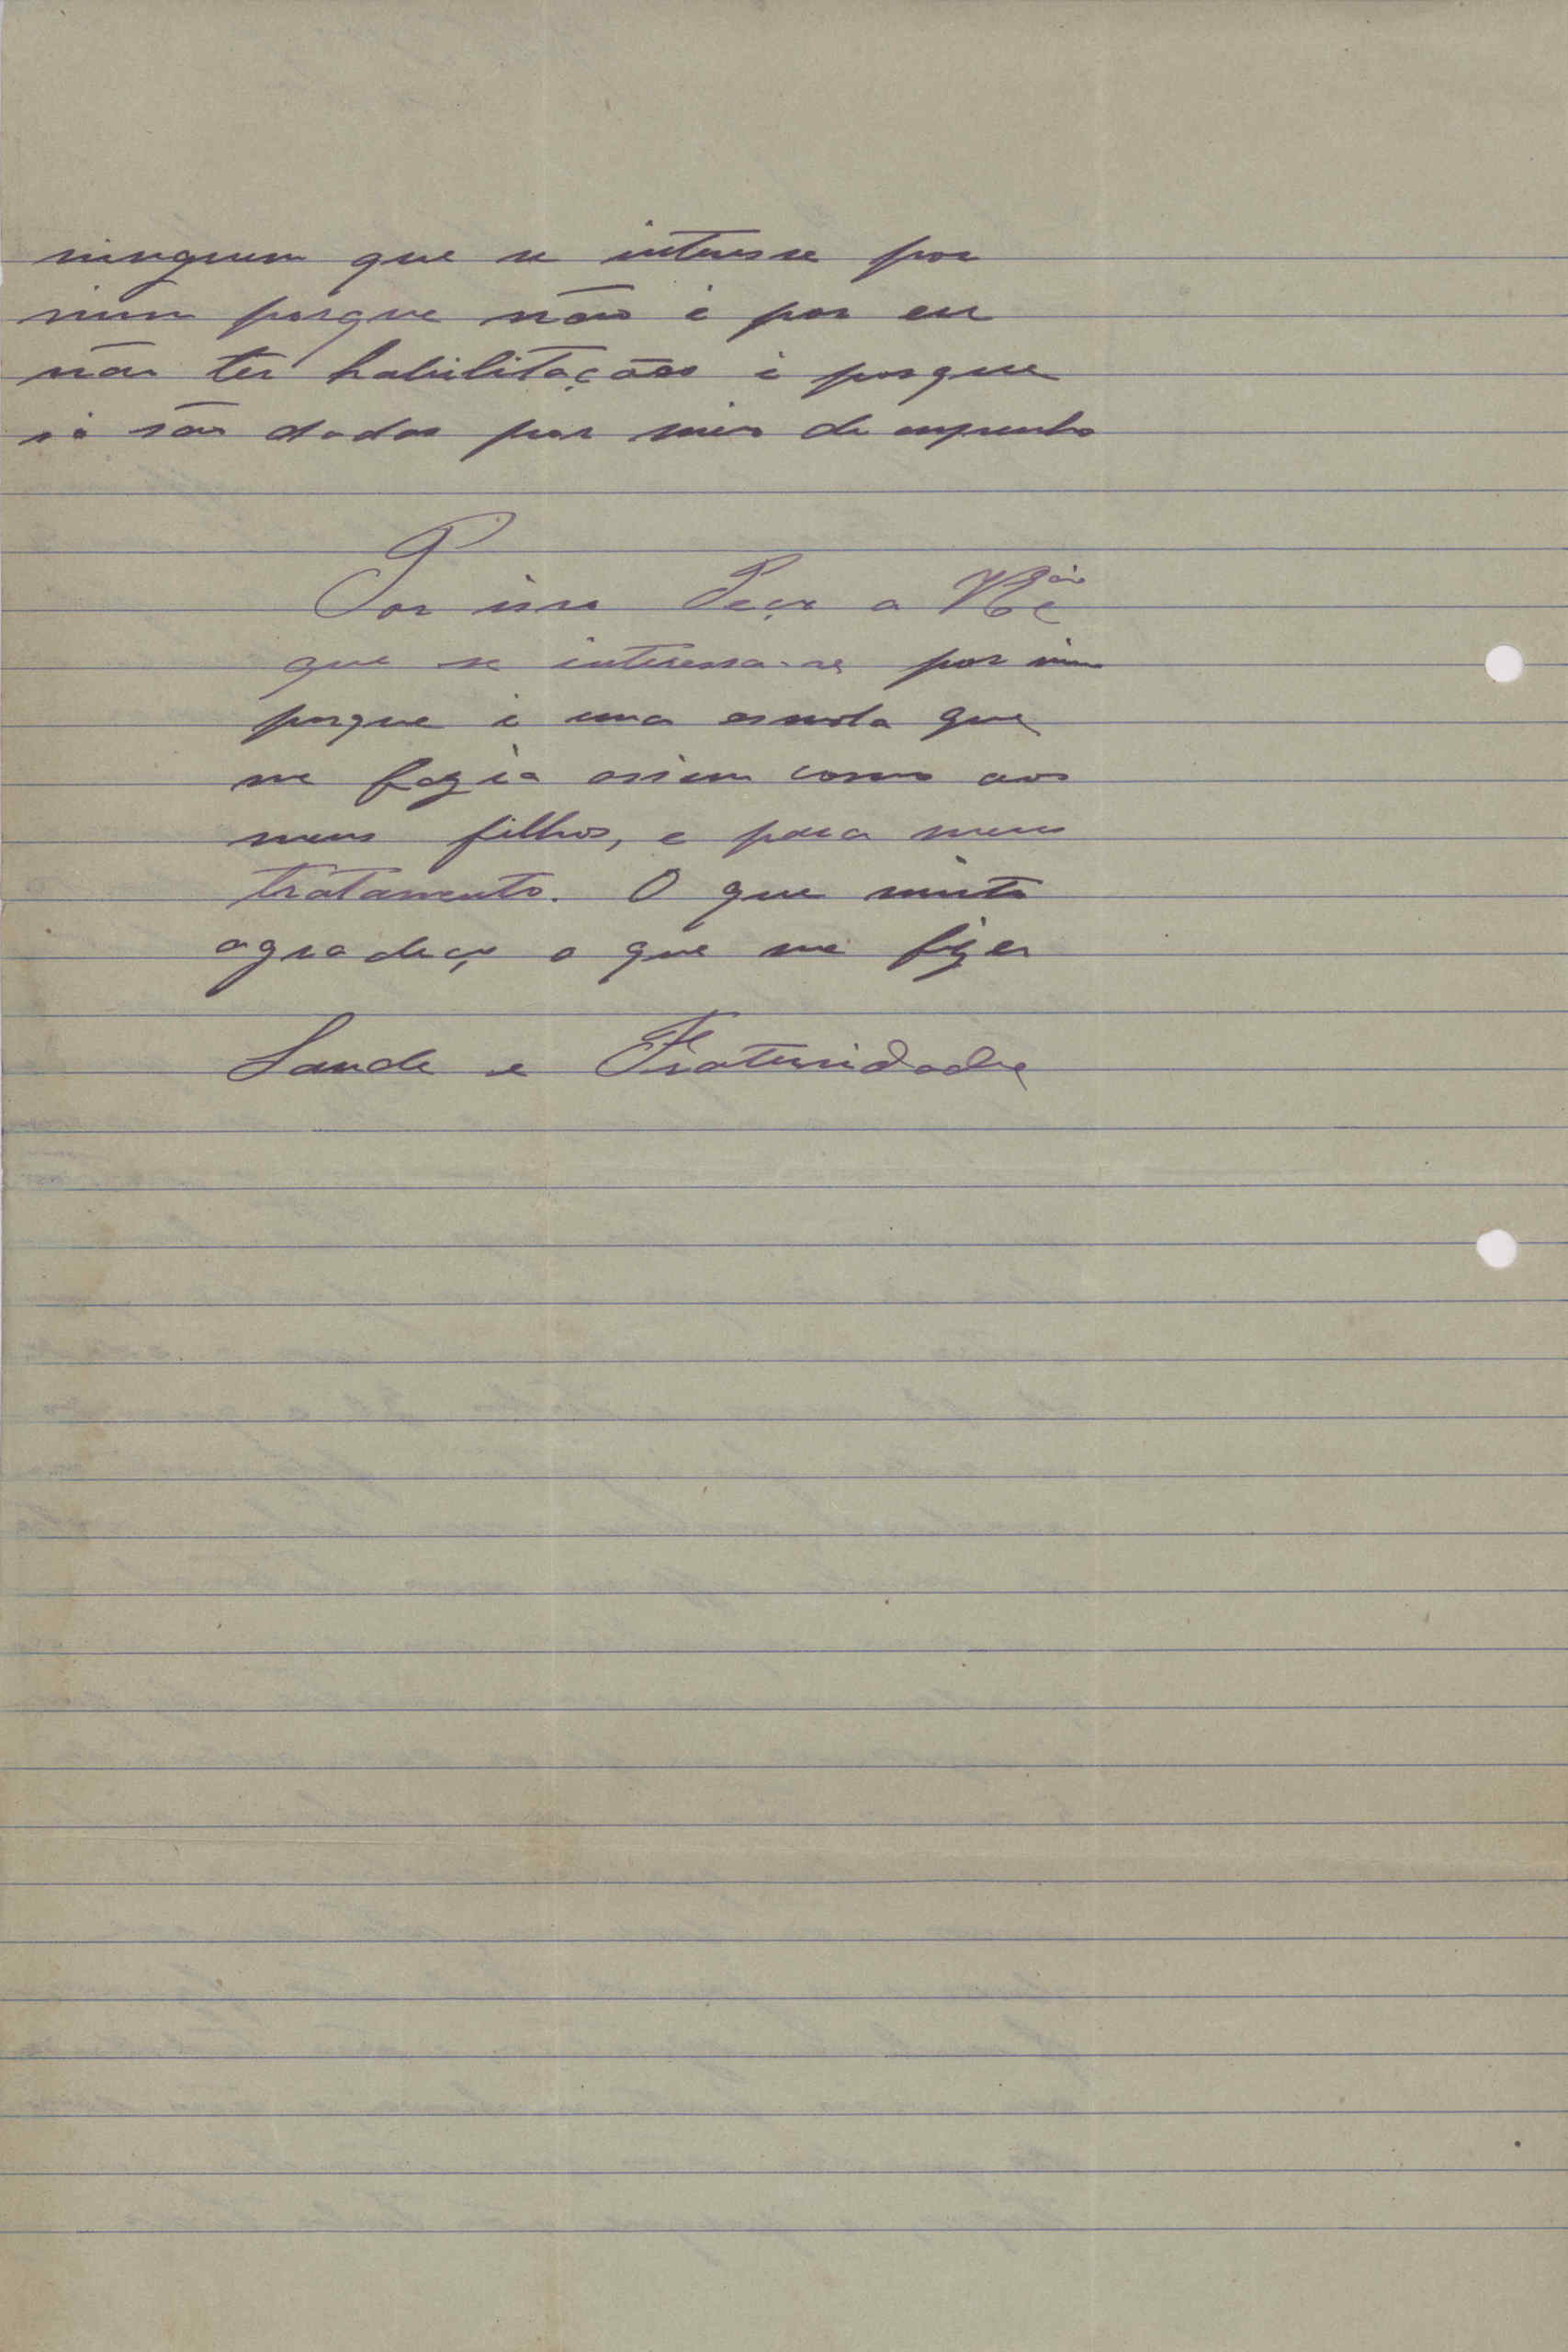 ninguem que se interesse por
mim porque não é por eu
não ter habilitações é porque
só são dados por meio de empenho
Por isso Peço a V. Ex.cia
que se interessa-se por mim
porque é uma esmola que
me fazia assim como aos
meus filhos, e para meu
tratamento. O que muito
agradeço o que me fizer
Saude e Fraternidade